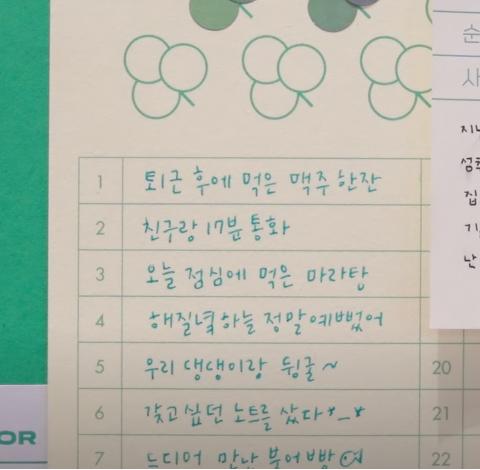 1 퇴근 후에 먹은 맥주 한잔
2 친구랑 17분 통화
3 오늘 점심에 먹은 마라탕
4 해질녘 하늘 정말 예뻤어
5 우리 댕댕이랑 뒹굴~
6 갖고 싶던 노트를 샀다*_*
7 드디어 만난 붕어빵
20
21
22
순
사
지나
성취
집
기
난
OR